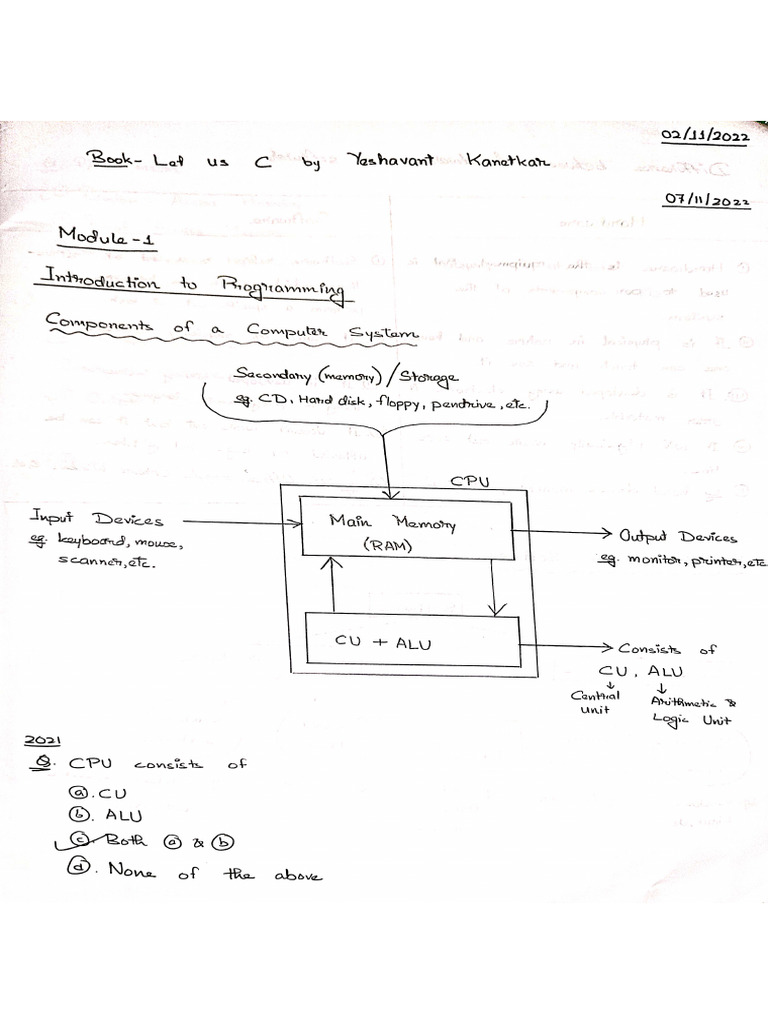 02/11/2022
Book- Let us C by Yeshavant Kanetkar
07/11/2022
Module-1
Introduction to Programming
Components of a Computer System
Secondary (memory) / Storage
eg. CD, Hard disk, floppy, pendrive, etc.
CPU
Input Devices
eg. keyboard, mouse,
scanner, etc.
Main Memory
(RAM)
Output Devices
eg. monitor, printer, etc
CU + ALU
Consists of
CU, ALU
Central
Unit
Arithmetic &
Logic Unit
2021
Q. CPU consists of
(a). CU
(b). ALU
(c). Both (a) & (b)
(d). None of the above